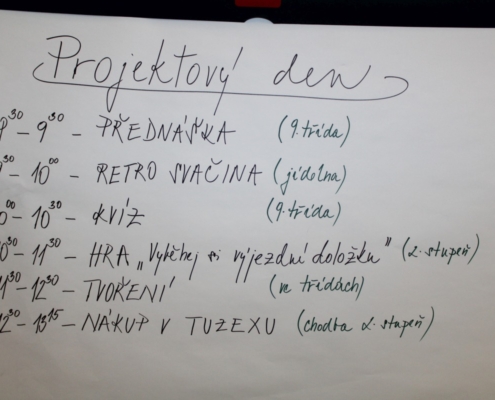 Projektový den
8³⁰ - 9³⁰ - PŘEDNÁŠKA (9. třída)
9³⁰ - 10⁰⁰ - RETRO SVAČINA (jídelna)
10⁰⁰ - 10³⁰ - KVÍZ (9. třída)
10³⁰ - 11³⁰ - HRA „Vyběhej si výjezdní doložku" (2. stupeň)
11³⁰ - 12³⁰ - TVOŘENÍ (ve třídách)
12³⁰ - 13¹⁵ - NÁKUP V TUZEXU (chodba 2. stupeň)